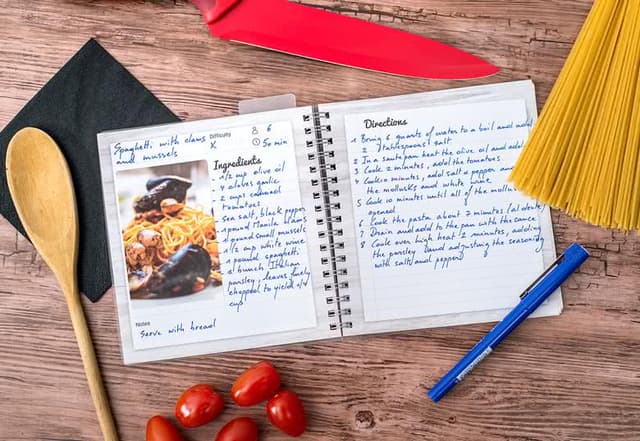 Spaghetti with clams
and mussels
Difficulty
X
6
50 min
Ingredients
- 1/2 cup olive oil
- 4 cloves garlic
- 2 cups canned
tomatoes
- sea salt, black pepper
- 1 pound Manila clams
- 1 pound small mussels
- 1/2 cup white wine
- 1 pound spaghetti
- a bunch Italian
parsley leaves finely
chopped to yield
cup
Notes
Serve with bread
Directions
1 Bring 6 quarts of water to a boil and add
2 tablespoons salt
2 In a saute pan heat the olive oil and add
3 Cook 2 minutes, add the tomatoes.
4 Cook 10 minutes, add salt & pepper and
the mollusks and white wine
5 Cook 10 minutes until all of the mollusks
opened
6 Cook the pasta about 7 minutes (al dente)
7 Drain and add to the pan with the sauce
8 Cook over high heat 2 minutes, adding
the parsley and adjusting the seasoning
with salt and pepper